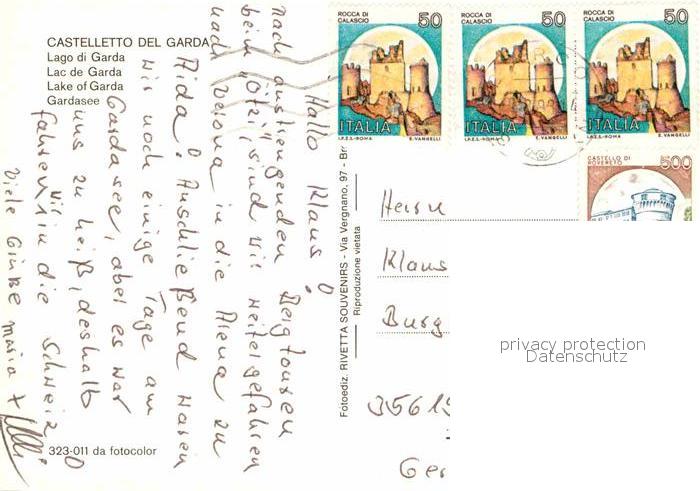 CASTELLETTO DEL GARDA
Lago di Garda
Lac de Garda
Lake of Garda
Gardasee
Hallo Klaus!
nach anstrengenden Bergtouren
beim "Ötzi" sind wir weitergefahren
nach Verona in die Arena zu
Aida. Anschließend waren
wir noch einige Tage am
Gardasee, aber es war
uns zu heiß, deshalb
fahren wir in die Schweiz
Viele Grüße Maria +
323-011 da fotocolor
Fotoediz. RIVETTA SOUVENIRS - Via Vergnano, 97 - Br
Riproduzione vietata
ROCCA DI
CALASCIO
50
ITALIA
I.P.Z.S.-ROMA E. VANGELLI
ROCCA DI
CALASCIO
50
ITALIA
I.P.Z.S.-ROMA E. VANGELLI
ROCCA DI
CALASCIO
50
ITALIA
I.P.Z.S.-ROMA E. VANGELLI
CASTELLO DI
ROVERETO
500
Herrn
Klaus
Burg
35619
Ger
privacy protection
Datenschutz